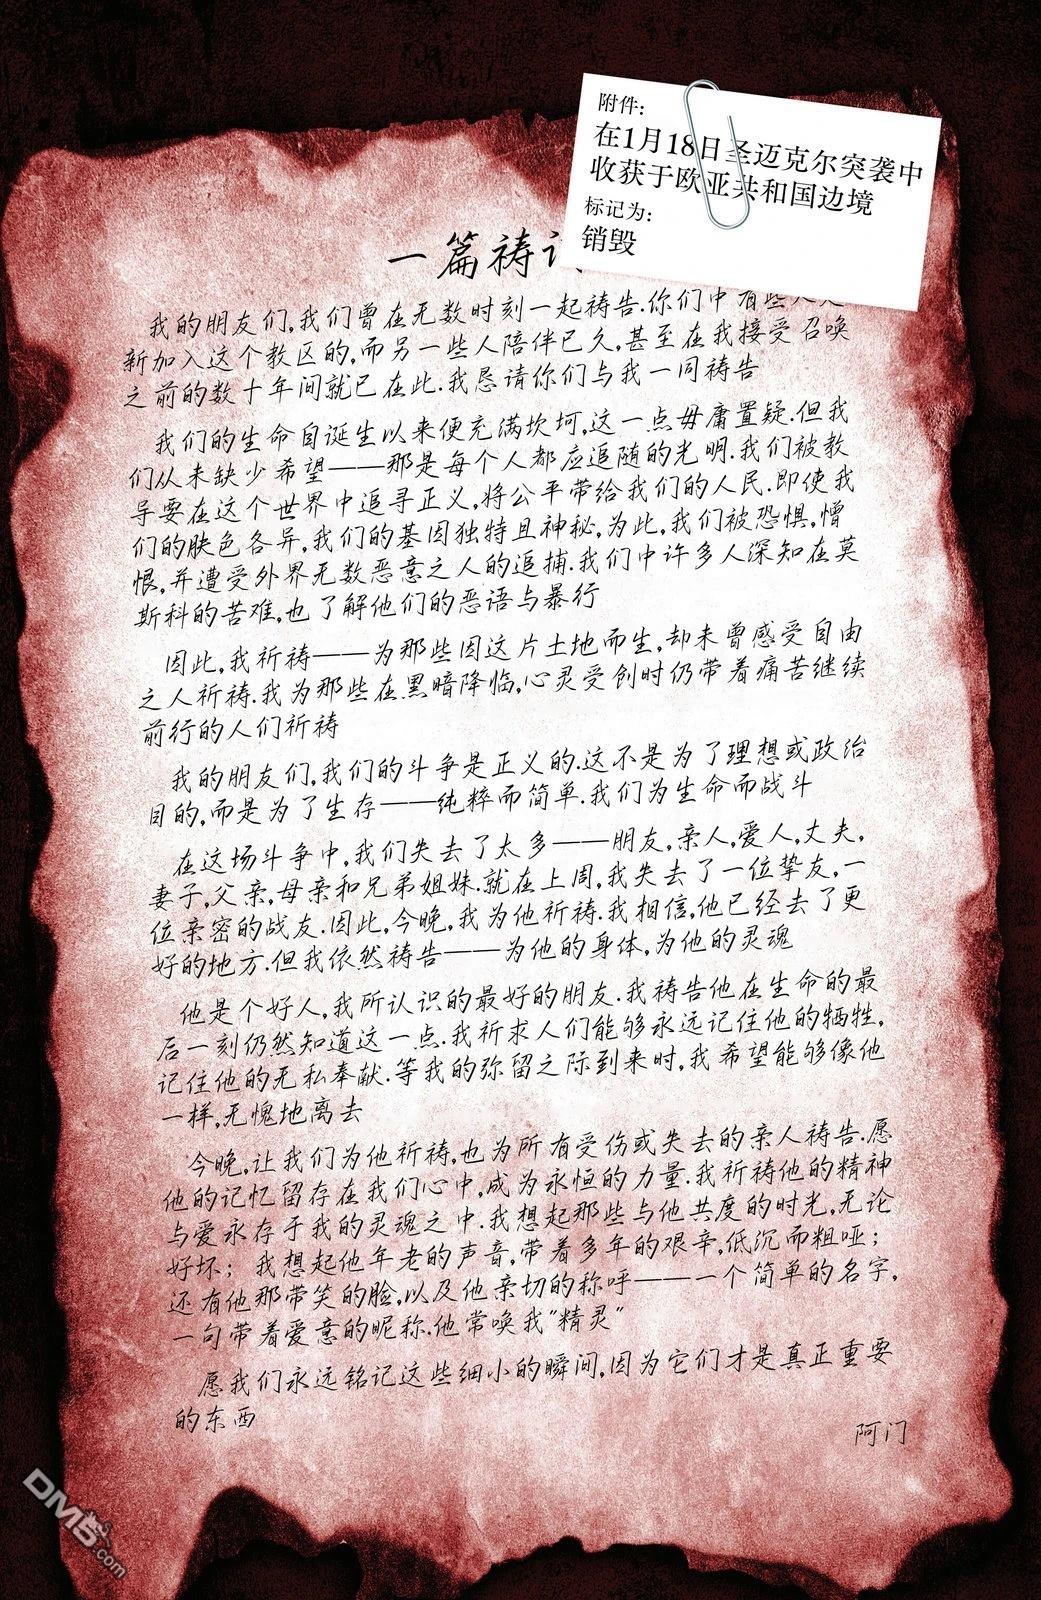 附件：
在1月18日圣迈克尔突袭中
收获于欧亚共和国边境
标记为：
销毁
一篇祷
我的朋友们,我们曾在无数时刻一起祷告.你们中有些人是
新加入这个教区的,而另一些人陪伴已久,甚至在我接受召唤
之前的数十年间就已在此.我恳请你们与我一同祷告
我们的生命自诞生以来便充满坎坷,这一点毋庸置疑.但我
们从未缺少希望——那是每个人都应追随的光明.我们被教
导要在这个世界中追寻正义,将公平带给我们的人民.即使我
们的肤色各异,我们的基因独特且神秘,为此,我们被恐惧,憎
恨,并遭受外界无数恶意之人的追捕.我们中许多人深知在莫
斯科的苦难,也了解他们的恶语与暴行
因此,我祈祷——为那些因这片土地而生,却未曾感受自由
之人祈祷.我为那些在黑暗降临,心灵受创时仍带着痛苦继续
前行的人们祈祷
我的朋友们,我们的斗争是正义的.这不是为了理想或政治
目的,而是为了生存——纯粹而简单.我们为生命而战斗
在这场斗争中,我们失去了太多——朋友,亲人,爱人,丈夫,
妻子,父亲,母亲和兄弟姐妹.就在上周,我失去了一位挚友,一
位亲密的战友.因此,今晚,我为他祈祷.我相信,他已经去了更
好的地方.但我依然祷告——为他的身体,为他的灵魂
他是个好人,我所认识的最好的朋友.我祷告他在生命的最
后一刻仍然知道这一点.我祈求人们能够永远记住他的牺牲,
记住他的无私奉献.等我的弥留之际到来时,我希望能够像他
一样,无愧地离去
今晚,让我们为他祈祷,也为所有受伤或失去的亲人祷告.愿
他的记忆留存在我们心中,成为永恒的力量.我祈祷他的精神
与爱永存于我的灵魂之中.我想起那些与他共度的时光,无论
好坏；我想起他年老的声音,带着多年的艰辛,低沉而粗哑；
还有他那带笑的脸,以及他亲切的称呼——一个简单的名字,
一句带着爱意的昵称.他常唤我"精灵"
愿我们永远铭记这些细小的瞬间,因为它们才是真正重要
的东西
阿门
DM5.com